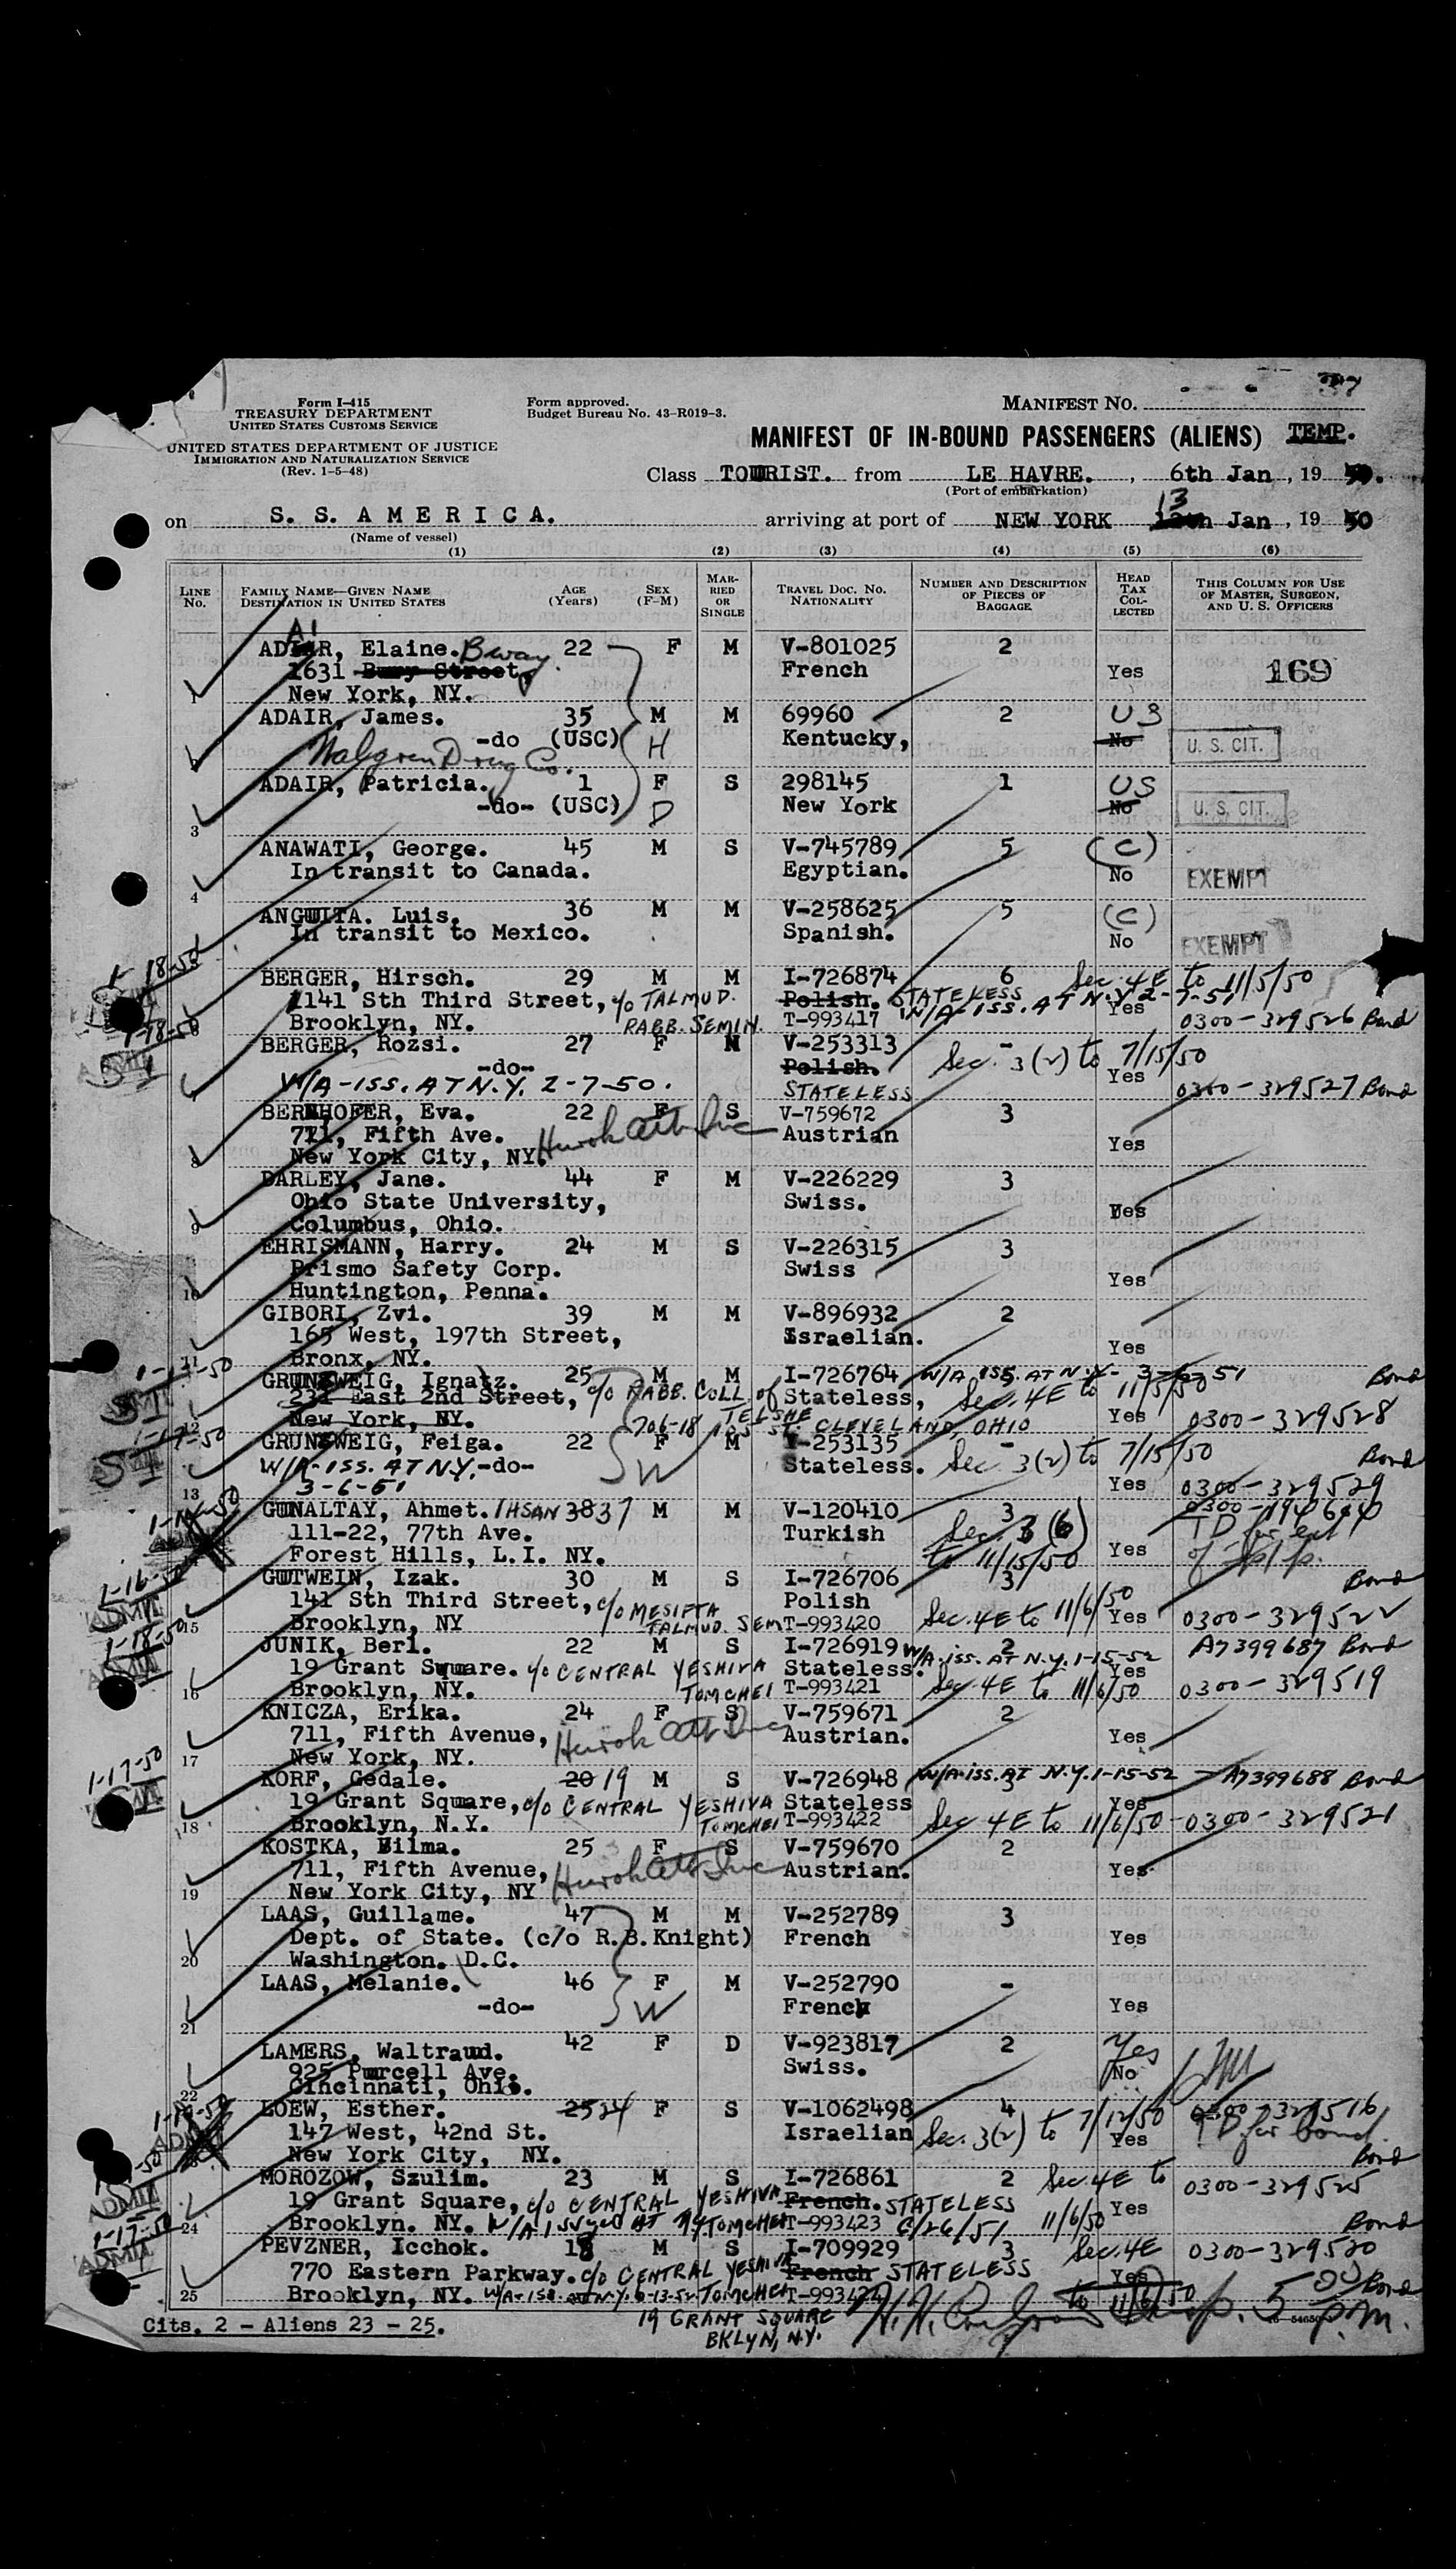 Form I-415
TREASURY DEPARTMENT
UNITED STATES CUSTOMS SERVICE
UNITED STATES DEPARTMENT OF JUSTICE
IMMIGRATION AND NATURALIZATION SERVICE
(Rev. 1-5-48)
Form approved.
Budget Bureau No. 43-R019-3.
MANIFEST NO.
MANIFEST OF IN-BOUND PASSENGERS (ALIENS) TEMP.
Class TOURIST. from LE HAVRE. , 6th Jan , 19 50.
(Port of embarkation)
on S. S. A M E R I C A. arriving at port of NEW YORK 13 Jan , 19 50
(Name of vessel)
(1) (2) (3) (4) (5) (6)
LINE No. FAMILY NAME—GIVEN NAME DESTINATION IN UNITED STATES AGE (Years) SEX (F-M) MARRIED OR SINGLE TRAVEL DOC. NO. NATIONALITY NUMBER AND DESCRIPTION OF PIECES OF BAGGAGE HEAD TAX COLLECTED THIS COLUMN FOR USE OF MASTER, SURGEON, AND U. S. OFFICERS
ADAIR, Elaine. Bway. 22 F M V-801025 2
1631 Bury Street, French Yes 169
1 New York, NY.
ADAIR, James. 35 M M 69960 2 US
-do (USC) H Kentucky, No U. S. CIT.
2 Walgreen Drug Co.
ADAIR, Patricia. 1 F S 298145 1 US
-do- (USC) D New York No U. S. CIT.
3
ANAWATI, George. 45 M S V-745789 5 (C)
In transit to Canada. Egyptian. No EXEMPT
4
ANGUITA. Luis. 36 M M V-258625 5 (C)
In transit to Mexico. Spanish. No EXEMPT
1-18-50
BERGER, Hirsch. 29 M M I-726874 6 Sec. 4E to 11/5/50
1141 Sth Third Street, c/o TALMUD. Polish. STATELESS W/A-ISS. AT N.Y. 2-7-51 Yes
Brooklyn, NY. RABB. SEMIN. T-993417 0300-329526 Bond
1-18-50
BERGER, Rozsi. 27 F M V-253313 - Sec. 3(2) to 7/15/50
-do- Polish. Yes
W/A-ISS. AT N.Y. 2-7-50. STATELESS 0300-329527 Bond
BERNHOFER, Eva. 22 F S V-759672 3
711, Fifth Ave. Hurok Att. Inc Austrian Yes
8 New York City, NY.
DARLEY, Jane. 44 F M V-226229 3
Ohio State University, Swiss. Yes
9 Columbus, Ohio.
EHRISMANN, Harry. 24 M S V-226315 3
Prismo Safety Corp. Swiss Yes
10 Huntington, Penna.
GIBORI, Zvi. 39 M M V-896932 2
165 West, 197th Street, Israelian. Yes
11 Bronx, NY.
1-17-50
GRUNZWEIG, Ignatz. 25 M M I-726764 W/A ISS. AT N.Y. Bond
231 East 2nd Street, c/o RABB. COLL. of Stateless, Sec. 4E to 11/5/50
12 New York, NY. 706-18 TELSHE 105 ST. CLEVELAND, OHIO Yes 0300-329528
1-17-50
GRUNZWEIG, Feiga. 22 F M -253135 - Bond
W/A-ISS. AT N.Y. -do- W Stateless. Sec. 3(2) to 7/15/50
13 3-6-51 Yes 0300-329529
GUNALTAY, Ahmet. IHSAN 38 37 M M V-120410 3
111-22, 77th Ave. Turkish Sec. 3 (6) Yes
Forest Hills, L.I. NY. to 11/15/50
1-16-50 ADMIT
GUTWEIN, Izak. 30 M S I-726706 3 Bond
141 Sth Third Street, c/o MESIFTA Polish Sec. 4E to 11/6/50 Yes 0300-329522
15 Brooklyn, NY TALMUD. SEM T-993420
1-18-50
JUNIK, Berl. 22 M S I-726919 2 W/A-iss. AT N.Y. 1-15-52 A7399687 Bond
19 Grant Square. c/o CENTRAL YESHIVA Stateless. Yes
16 Brooklyn, NY. TOMCHEI T-993421 Sec. 4E to 11/6/50 0300-329519
KNICZA, Erika. 24 F S V-759671 2
711, Fifth Avenue, Hurok Att Inc Austrian. Yes
17 New York, NY.
1-17-50
KORF, Gedale. 20 19 M S V-726948 3 W/A-iss. AT N.Y. 1-15-52 A7399688 Bond
19 Grant Square, c/o CENTRAL YESHIVA Stateless Yes
18 Brooklyn, N.Y. TOMCHEI T-993422 Sec 4E to 11/6/50 - 0300-329521
KOSTKA, Wilma. 25 F S V-759670 2
711, Fifth Avenue, Hurok Att Inc Austrian. Yes
19 New York City, NY
LAAS, Guillame. 47 M M V-252789 3
Dept. of State. (c/o R.B.Knight) French Yes
20 Washington. D.C.
LAAS, Melanie. 46 F M V-252790 -
-do- W French Yes
21
LAMERS, Waltraud. 42 F D V-923817 2 Yes
925 Purcell Ave. Swiss. No
22 Cincinnati, Ohio.
LOEW, Esther. 25 24 F S V-1062498 4
147 West, 42nd St. Israelian Sec. 3(2) to 7/12/50 Yes
New York City, NY.
ADMIT
MOROZOW, Szulim. 23 M S I-726861 2 Sec. 4E to Bond
19 Grant Square, c/o CENTRAL YESHIVA French. STATELESS 11/6/50 Yes 0300-329525
24 Brooklyn. NY. W/A Issued AT N.Y. TOMCHEI T-993423 6/26/51
1-17-50 ADMIT
PEVZNER, Icchok. 18 M S I-709929 3 Sec. 4E Bond
770 Eastern Parkway. c/o CENTRAL YESHIVA French STATELESS Yes 0300-329520
25 Brooklyn, NY. W/A-iss. AT N.Y. 6-13-52 TOMCHEI to 11/6/50 Bond
19 GRANT SQUARE
BKLYN, N.Y.
Cits. 2 - Aliens 23 - 25.
5 00 P.M.